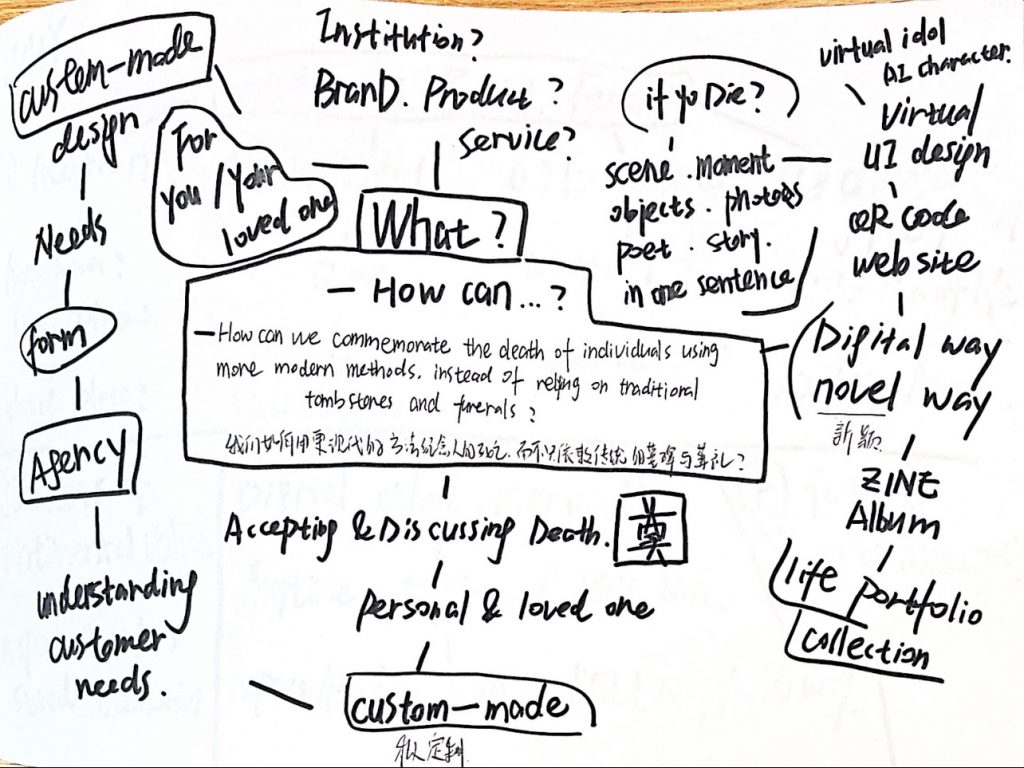 custom-made
design
Needs
form
Agency
understanding
customer
needs.
For
you/your
loved one
Institution?
BranD. Product?
service?
What?
if yo Die?
scene. moment
objects. photoes
poet. story.
in one sentence
virtual idol
AI character.
virtual
UI design
QR code
website
Digital way
novel way
新颖
ZINE
Album
life portfolio
collection
— How can...?
— How can we commemorate the death of individuals using
more modern methods. instead of relying on traditional
tombstones and funerals?
我们如何用更现代的方法纪念人的死亡.而不只依赖传统的墓碑与葬礼?
Accepting & Discussing Death.
奠
personal & loved one
custom-made
私人定制